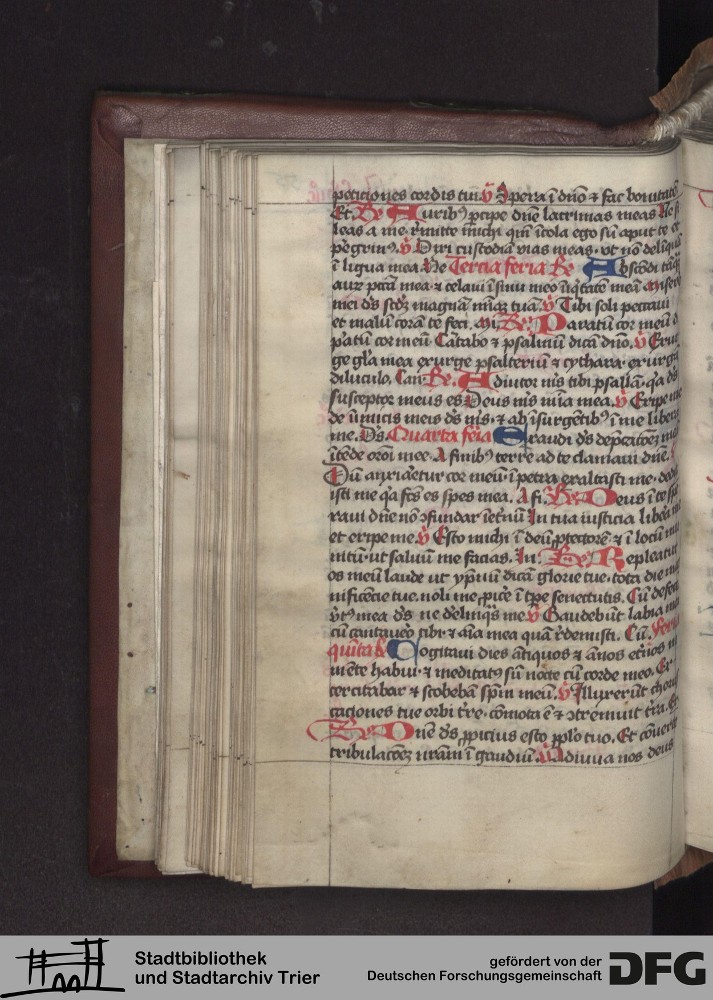 peticiones cordis tui ℣ Spera ī dn̄o ⁊ fac bonitatē
Et. Rx Auribꝫ ꝑcipe dn̄e lacrimas meas Ne si
leas a me r̄mitte michi qm̄ īcola ego sū aput te et
peregrinꝰ. ℣ Dixi custodiā vias meas. vt nō delīquā
ī ligua mea. Ne Tercia feria Rx Abscōdi tāq̄
aur pctā mea ⁊ celaui ī sinu meo iīqtatē meā. Misere
mei ds scdꝫ magnā miā tuā. ℣ Tibi soli peccaui
et malū corā te feci. Mi. Rx. Paratū cor meū d
ꝑatū cor meū Cātabo ⁊ psalmū dicā dn̄o. ℣ Exur
ge gl̄a mea exurge psalteriū ⁊ cythara. exurgā
diluculo. Can. Rx. Adiutor m̄s tibi psallā. qa ds
susceptor meus es Deus m̄s mīa mea. ℣ Eripe me
de inimicis meis ds m̄s. ⁊ ab īsurgētibꝫ ī me libera
me. Ds. Quarta feīa Exaudi ds dep̄catōeꝫ meā
ītēde orōi mee. A finibꝫ terre ad te clamaui dn̄e.
Dū anxiaretur cor meū. ī petra exaltasti me. dedu
isti me qa fcs es spes mea. A fi. Rx Deus ī te spe
raui dn̄e nō ꝯfundar īet'nū In tua iusticia libera me
et eripe me. ℣ Esto michi ī deū ꝓtectorē ⁊ ī locū mu
nitū. ut saluū me facias. In. Rx Repleatur
os meū laude ut ypnū dicā glorie tue. tota die mag
nificēcie tue. noli me ꝓicē ī tꝑe senectutis. Cū defec'
v̄tꝰ mea ds ne delinq̄s me ℣ Gaudebūt labia mea
cū cantauero tibi. ⁊ aīa mea quā r̄demisti. Cū. Feria
quīta Rx Cogitaui dies ātiquos ⁊ ānos et'nos in
mēte habui. ⁊ meditatꝰ sū nocte cū corde meo. Ex
ercitabar ⁊ scobebā spm̄ meū. ℣ Illuxerūt chorus
cationes tue orbi t̄re. cōmota ē ⁊ ꝯtremuit t̄ra. Ex
Rx Dn̄e ds ꝓpicius esto pplo tuo. Et cōuerte
tribulacōeꝫ nr̄am ī gaudiū. ℣ Adiuua nos deus
Stadtbibliothek
und Stadtarchiv Trier
gefördert von der
Deutschen Forschungsgemeinschaft
DFG